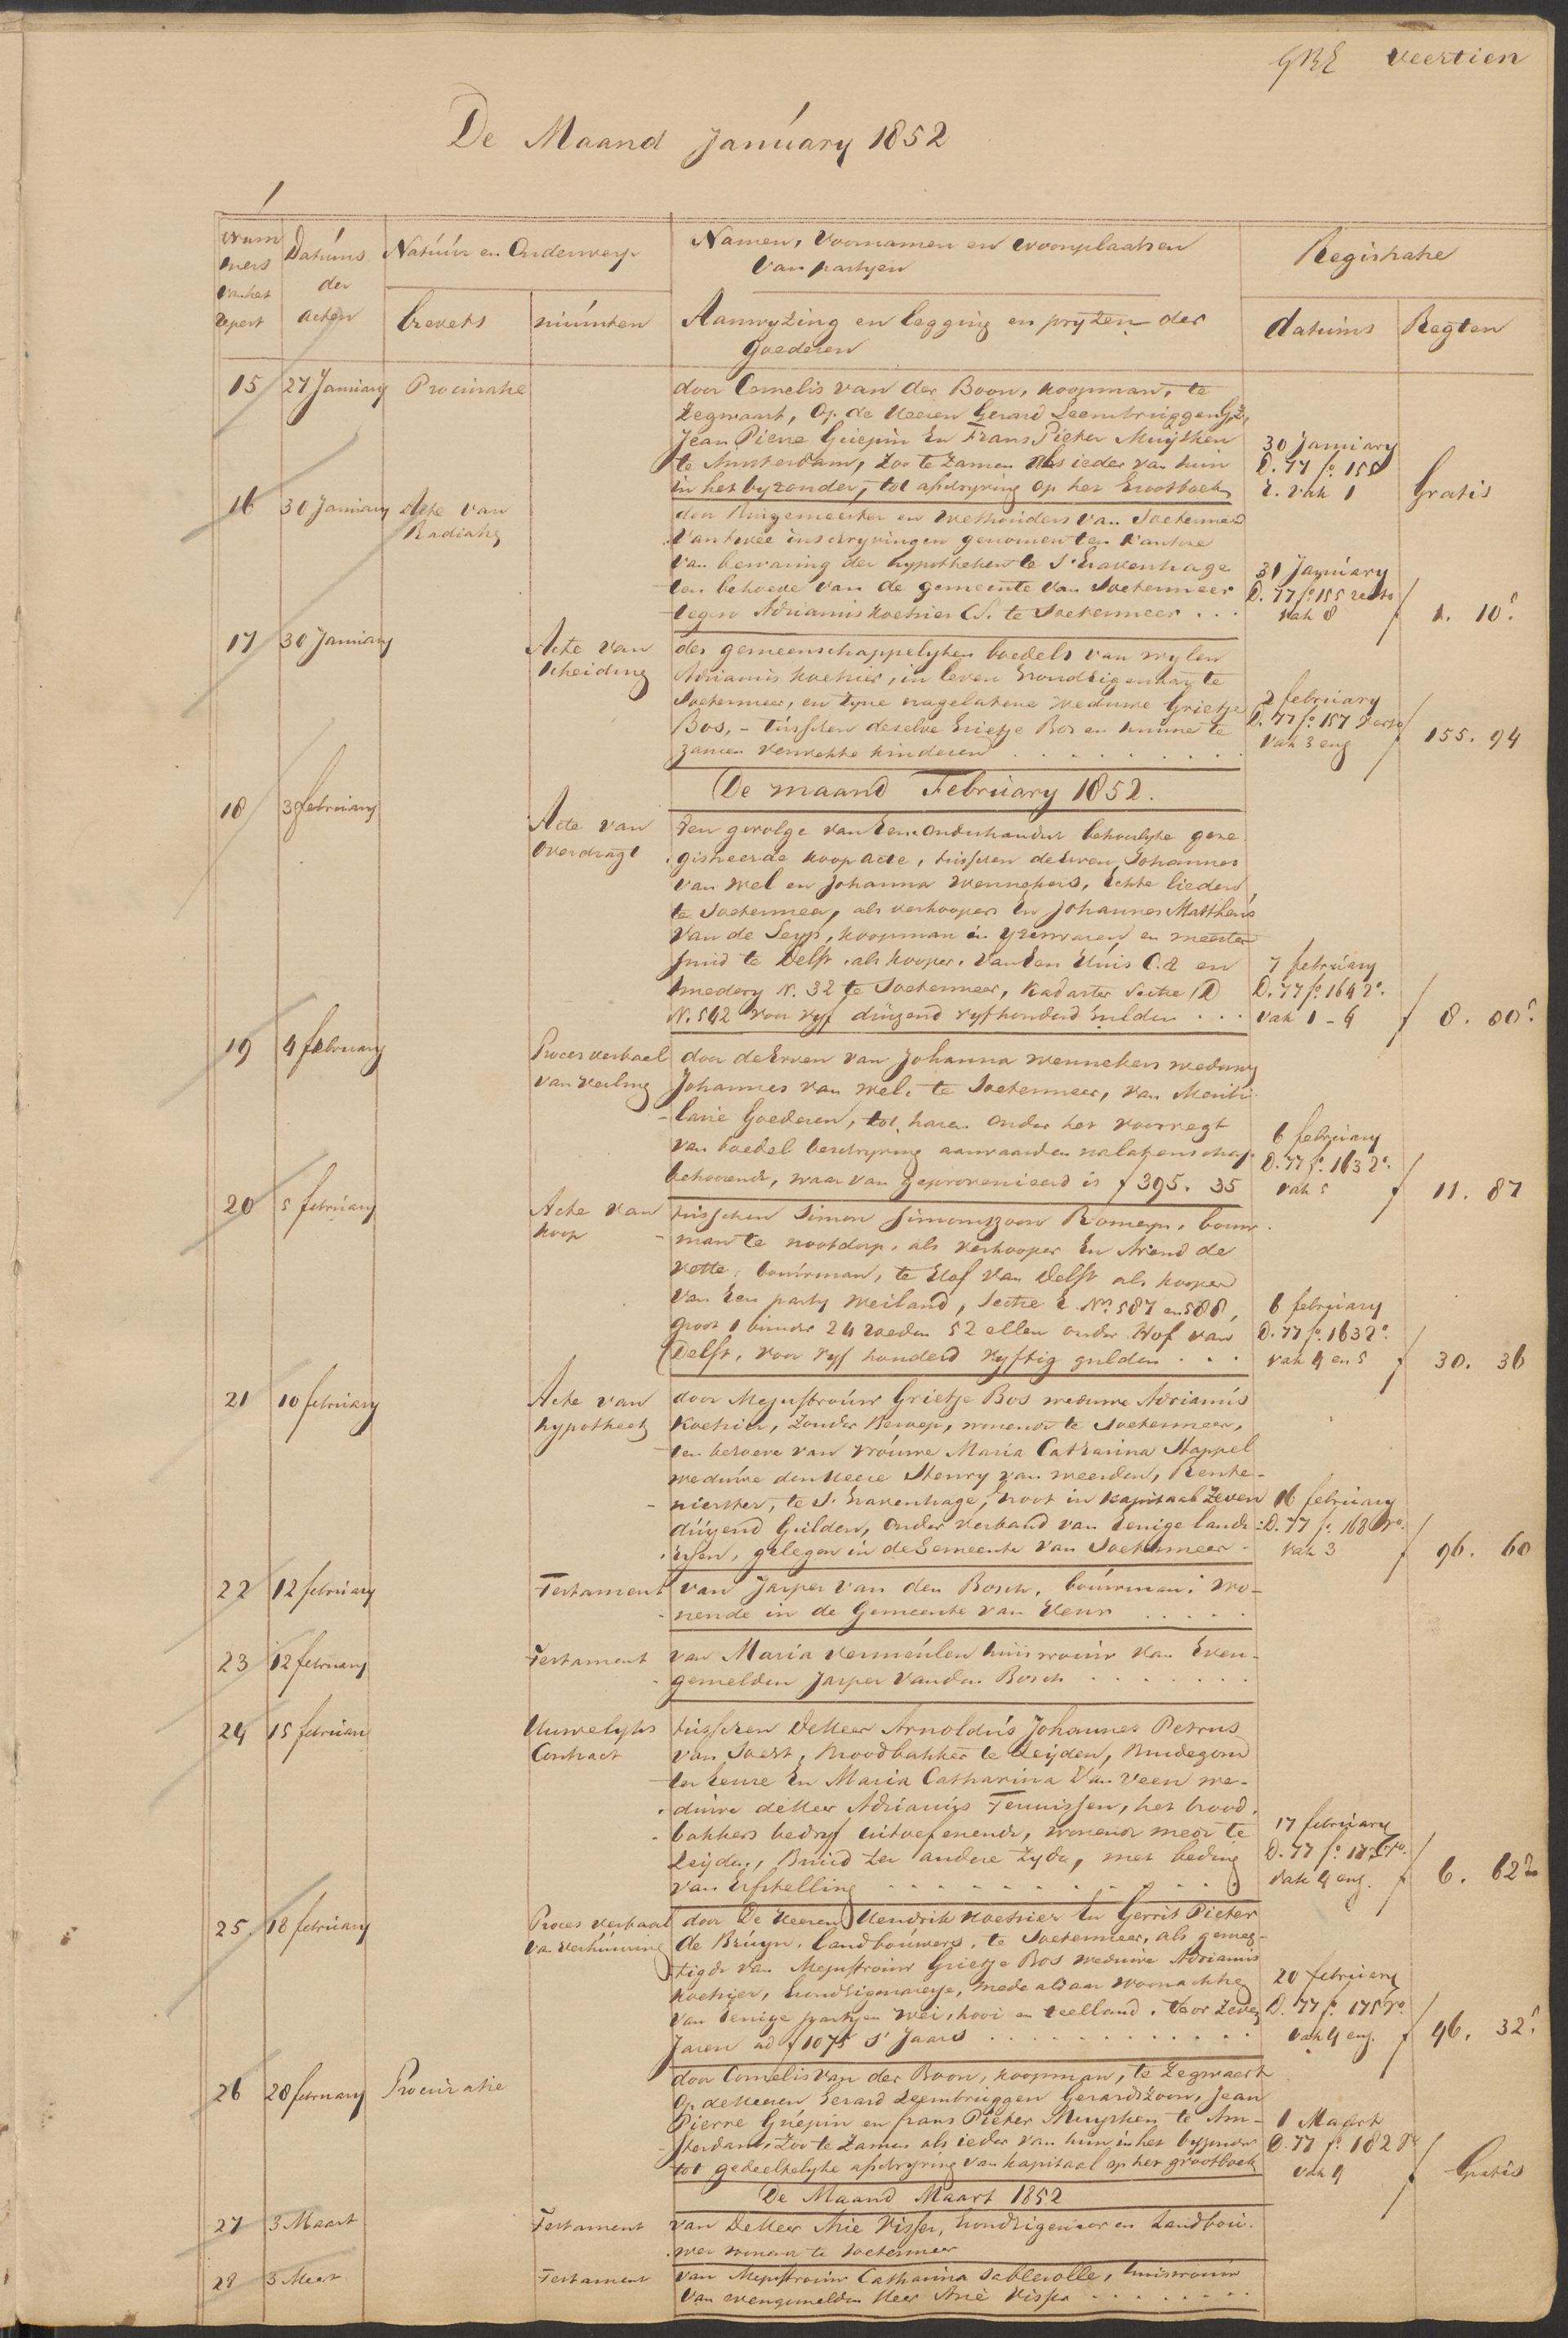 veertien
De Maand January 1852
Num
mers
van het
Repert
Datums
der
acten
Natuur en Onderwerp
brevets
minuten
Namen, Voornamen en Woonplaatsen
Van partyen
Aanwyzing en legging en pryzen der
goederen
Registratie
datums
Regten
15 27 January Procuratie
door Cornelis van der Boon, koopman, te
Zegwaart, Op de Heeren Gerard Leembruggen Gz,
Jean Pierre Guepin En Frans Pieter Muysken
te Amsterdam, Zoo te Zamen als ieder van hun
in het byzonder, tot afschryving op het Grootboek
30 January
D. 77 fo 155
r. vak 1
Gratis
16 30 January Acte van
Radiatie
door Burgemeester en Wethouders van Soetermeer
van twee inschryvingen genomen ten kantore
van bewaring der hypotheken te S'Gravenhage
ten behoeve van de gemeente van Soetermeer
tegen Adrianus Koetsier CS. te Soetermeer . . .
31 January
D. 77 fo 155 recto
vak 8
f 1. 10 5
17 30 January Acte van
Scheiding
des gemeenschappelyken boedels van wylen
Adrianus Koetsier, in leven Grondeigenaar te
Soetermeer, en zyne nagelatene weduwe Grietje
Bos, - tusschen dezelve Grietje Bos en hunne te
zamen verwekte kinderen . . . . . . . .
2 february
D. 77 fo 157 verso
vak 3 eng
f 155. 94
De maand February 1852.
18 3 february
Acte van
Overdragt
Ten gevolge van Eene Onderhandsche behoorlyke gere
gistreerde koop acte, tusschen de Erven Johannes
van Wel en Johanna Wennekers, Echte lieden,
te Soetermeer, als verkoopers En Johannes Mattheus
Van de Seyp, koopman in yzerwaren en meester
smid te Delft, als kooper, van Een Huis C.a en
smedery N. 32 te Soetermeer, Kadaster Sectie D
N. 542 voor vyf duyzend vyfhonderd Gulden . . .
7 february
D. 77 fo 164 vo.
vak 1 - 4
f 8. 00 5
19 4 february
Proces verbael
van veiling
door de Erven van Johanna Wennekers weduwe
Johannes van Wel, te Soetermeer, van Meubi
laire Goederen, tot haren Onder het voorregt
van boedel beschryving aanvaarden nalatenschap
behoorende, waar van geprovenieerd is f 395. 35
6 february
D. 77 fo. 163 vo.
vak 5
f 11. 87
20 5 february
Acte van
koop
tusschen Simon Simonszoon Romeyn, bouw
man te nootdorp, als verkooper En Arend de
Vette, bouwman, te Hof van Delft als kooper
Van Een party Weiland, Sectie E No. 587 en 588,
groot 1 bunder 24 roeden 52 ellen onder Hof van
Delft, voor vyf honderd vyftig gulden . . .
6 february
D. 77 fo. 163 vo.
vak 4 en 5
f 30. 36
21 10 february
Acte van
hypotheek
door Mejuffrouw Grietje Bos weduwe Adrianus
Koetsier, Zonder Beroep, wonende te Soetermeer,
ten behoeve van vrouwe Maria Catharina Stappel
weduwe den Heere Henry van Meerden, Rente-
nierster, te S'Gravenhage, groot in kapitaal Zeven
duyzend Gulden, Onder verband van Eenige lande-
ryen, gelegen in de Gemeente van Soetermeer -
16 february
D. 77 fo. 168 vo.
vak 3
f 96. 60
22 12 february
Testament
van Jasper van den Bosch, bouwman, wo-
nende in de Gemeente van Veur . . . . .
23 12 february
Testament
van Maria Vermeulen huisvrouw van Even-
gemelden Jasper van den Bosch . . . . . . .
24 15 februari
Huwelyks
Contract
tusschen de Heer Arnoldus Johannes Petrus
van Soest, Broodbakker te Leyden, Bruidegom
ter Eenre En Maria Catharina Van Veen we-
duwe de Heer Adrianus Teunissen, het brood
bakkers bedryf uitoefenende, wonende mede te
Leyden, Bruid ter andere Zyde, met beding
van Erfstelling . . . . . . . . . .
17 february
D. 77 fo 173 ro.
vak 4 eng.
f 6. 62
25 18 february
Proces verbaal
Van verhuuring
door De Heeren Hendrik Koetsier En Gerrit Pieter
de Bruyn, landbouwers, te Soetermeer, als gemag-
tigde van Mejuffrouw Grietje Bos weduwe Adrianus
Koetsier, Grondeigenaresse, mede aldaar woonachtig
van Eenige partyen wei, hooi en teelland. Voor Zeven
Jaren ad f 1075 S' Jaars . . . . . . . . . .
20 february
D. 77 fo. 175 ro.
vak 4 eng.
f 46. 32 5
26 28 february Procuratie
door Cornelis van der Boon, koopman, te Zegwaart
Op de Heeren Gerard Leembruggen Gerardszoon, Jean
Pierre Guépin en frans Pieter Muysken te Am-
sterdam, Zoo te Zamen als ieder van hun in het byzonder
tot gedeeltelyke afschryving van kapitaal op het grootboek
1 Maart
D. 77 fo. 182 ro
vak 4
f Gratis
De Maand Maart 1852
27 3 Maart
Testament
van De Heer Arie Visser, Grondeigenaar en Landbou-
wer wonende te Soetermeer
28 3 Maart
Testament
van Mejuffrouw Catharina Sablerolle, huisvrouw
Van evengemelden Heer Arie Visser . . . . . . .